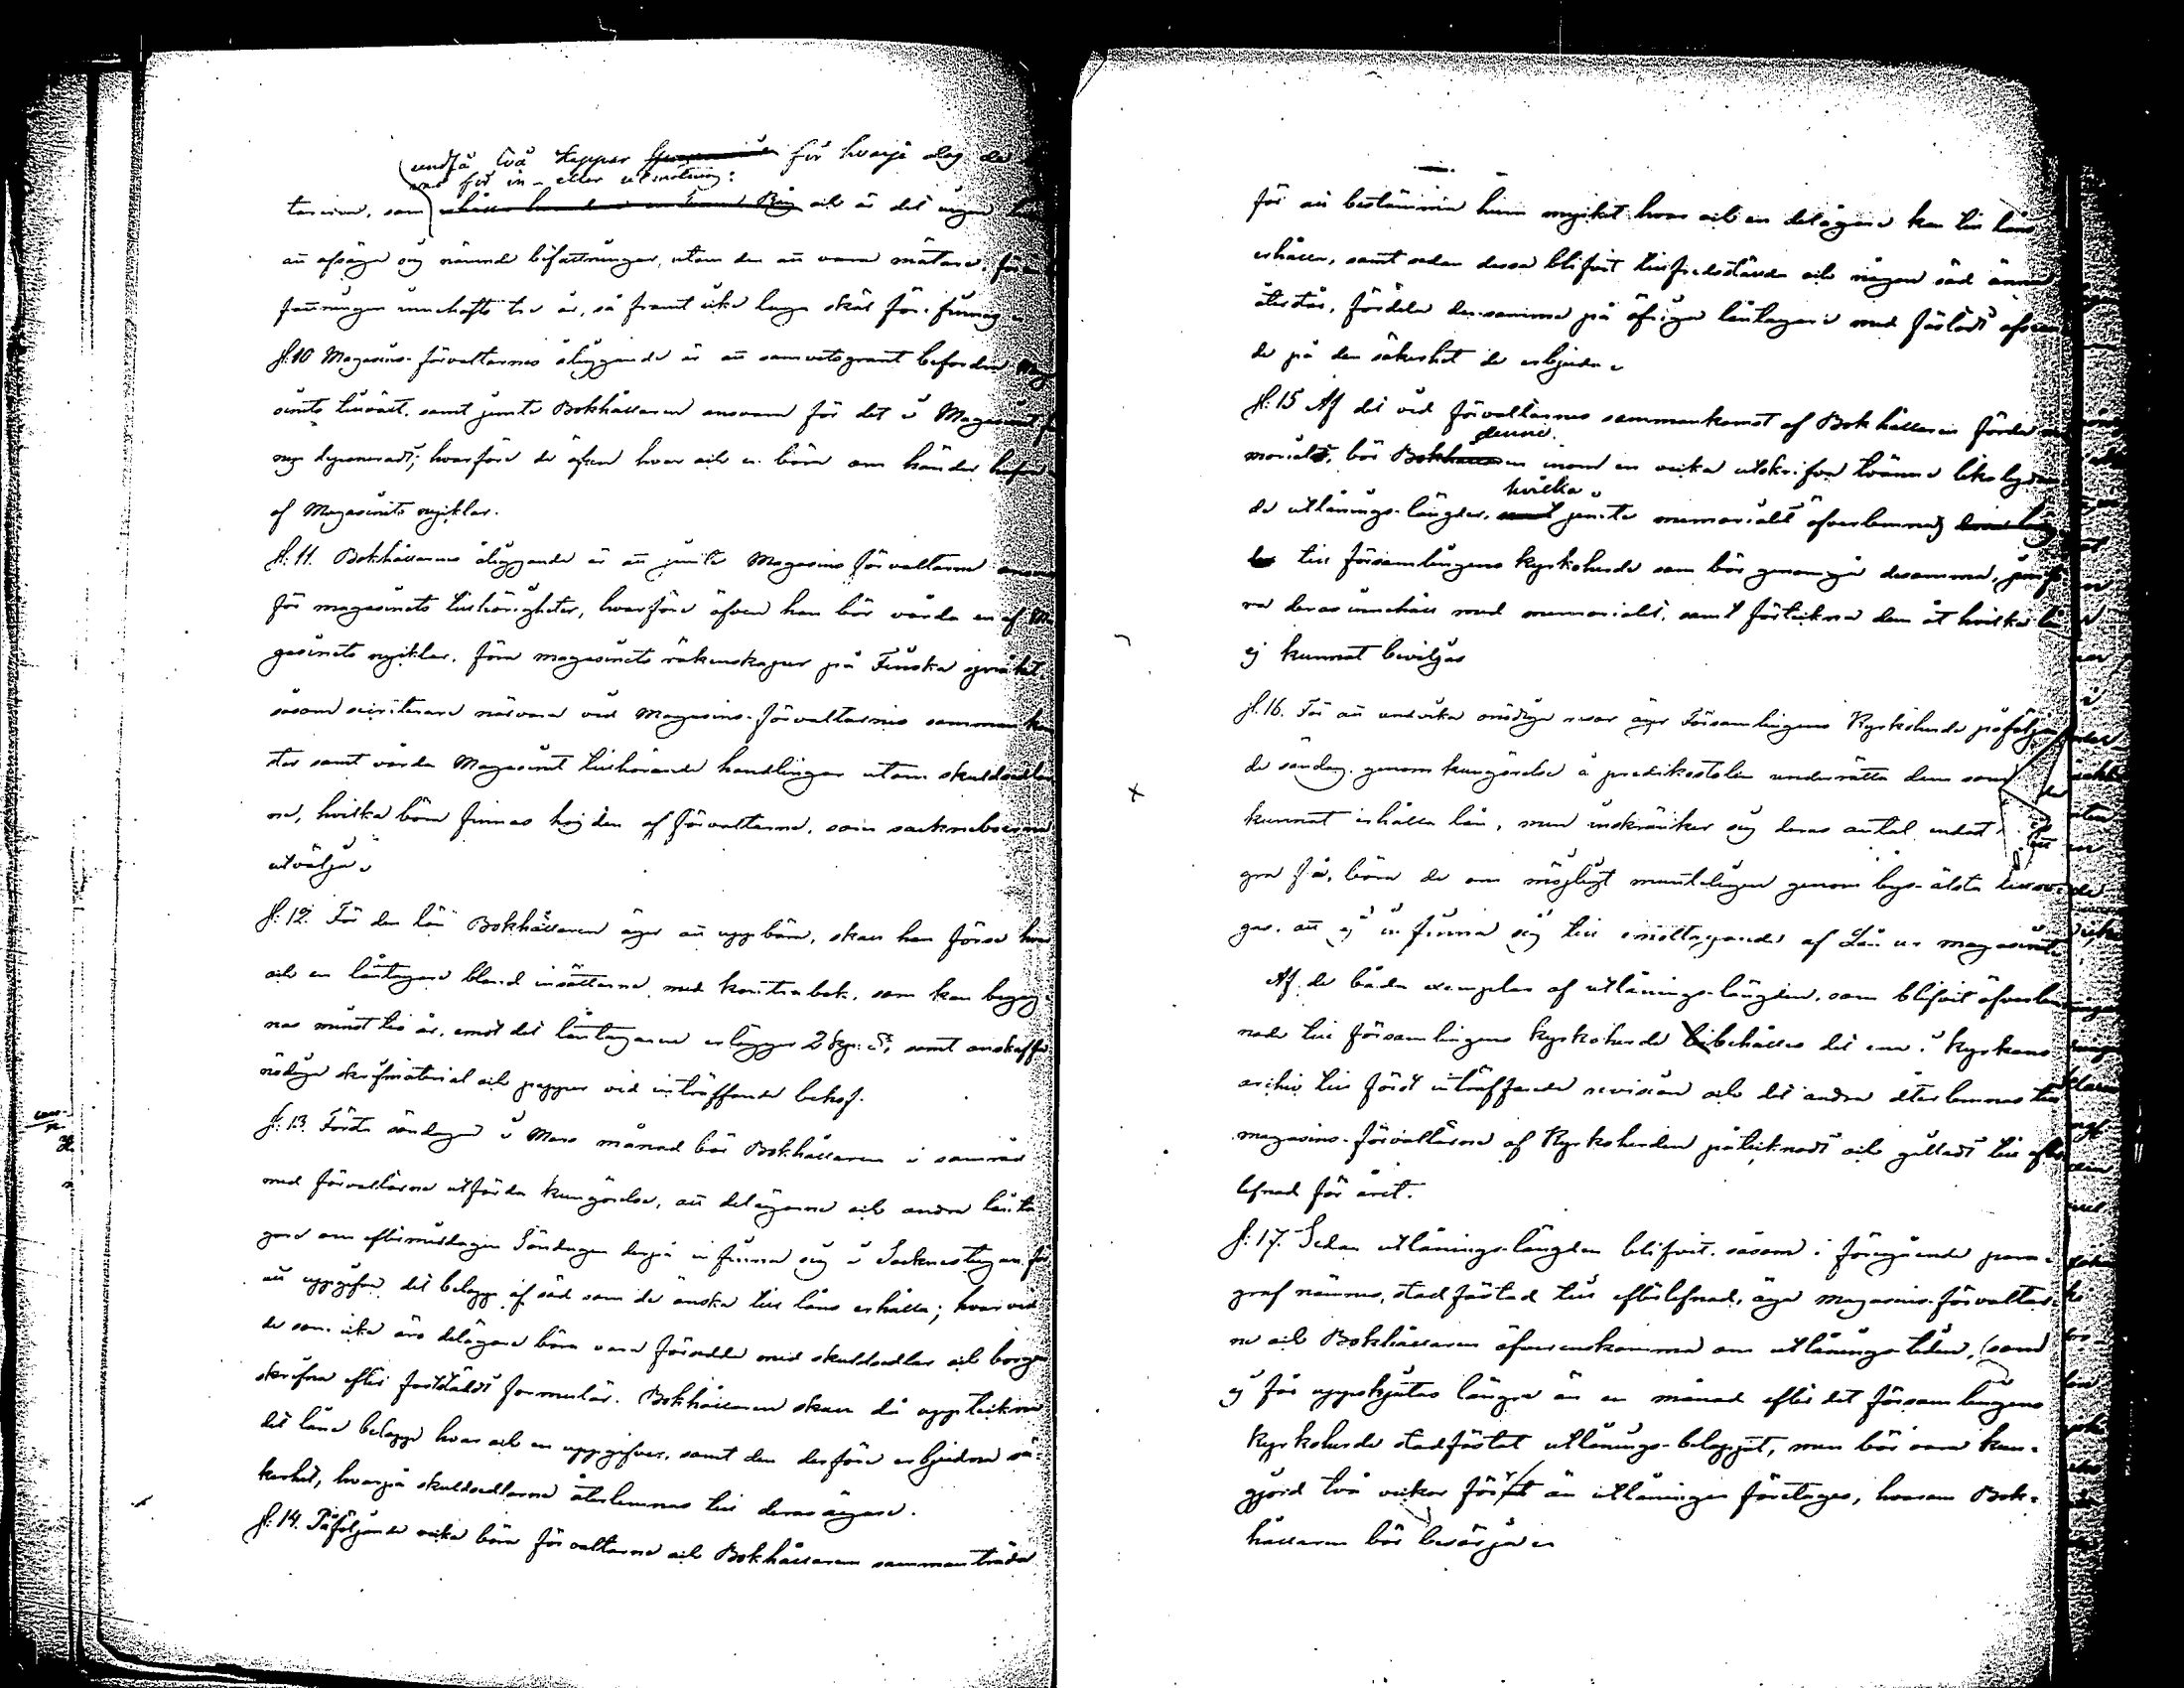 undfå två kappar för hvarje dag de
för in- eller utmätning:
tarena, som och är det ingen
att afsäga sig nämnde befattningar, utan den att vara mätare,
innehaft tre år, så framt icke laga skäl före finnas
§.10 Magasins-förvaltarnes åliggande är att samvetsgrannt befordra Maga
sinets tillväxt, samt jemte Bokhållaren ansvara för det i Magasinet
deponeradt; hvarföre de äfven hvar och en böra om händer hafva
af Magasinets nycklar.
§. 11. Bokhållarens åliggande är att jemte Magasins förvaltarne ansvara
för magasinets tillhörigheter, hvarföre äfven han bör vårda en af Ma
gasinets nycklar, föra magasinets räkenskaper på Finska språket,
såsom närvara vid Magasins-förvaltarnes samman kom
ster samt vårda Magasinet tillhörande handlingar utom skuldsedlar
ne, hvilka böra finnas hos den af förvaltarne, som sockneboerne
utvälja.
§. 12. För den lön Bokhållaren äger att uppbära, skall han förse hvar
och en låntagare bland insättarne med kontrabok, som kan begag
nas minst tio år, emot det låntagaren erlägger 2 samt anskaffa
nödiga skrifmaterial och papper vid inträffande behof.
§. 13. Första söndagen i Mars månad bör Bokhållaren i samråd
med förvaltarne utfärda kungörelse, att delägarne och andra lånta
gare om eftermiddagen Söndagen derpå infinna sig i Socknestugan för
att uppgifva det belopp af säd som de önska till låns erhålla; hvarvid
de som icke äro delägare böra vara försedde med skuldsedlar och borgen
skrifna efter fastställdt formulär. Bokhållaren skall då uppteckna
det låne belopp hvar och en uppgifver, samt den derföre erbjudna sä-
kerhet, hvarpå skuldsedlarne återlemnas till deras ägare.
§. 14. Påföljande vecka böra förvaltarne och Bokhållaren sammanträda
för att bestämma huru mycket hvar och en delägare kan till låns
erhålla, samt sedan dessa blifvit tillfredsställda och någon säd ännu
återstår, fördela densamma på öfriga låntagare med fästadt afseen
de på den säkerhet de erbjuda.
§. 15 Af det vid förvaltarnes sammankomst af Bokhållaren förda
denne
morialet, bör inom en vecka utskrifva tvänne lika lydan
hvilka
de utlånings-längder, jemte memorialet öfverlemnas
till församlingens kyrkoherde som bör genomgå desamma, jemfö
ra deras innehåll med memorialet, samt förteckna dem åt hvilka lån
ej kunnat beviljas
§. 16. För att undvika onödiga resor äger Församlingens Kyrkoherde påföljan
de söndag genom kungörelse å predikostolen underrätta dem som
kunnat erhålla lån, men inskränker sig deras antal endast till
gra få, böra de om möjligt munteligen genom bys-älste
gas, att ej infinna sig till emottagande af Lån ur magasinet
Af de båda exemplar af utlånings-längden, som blifvit öfverlem
nade till församlingens kyrkoherde bibehålles det ena i kyrkans
archiv till först inträffande revision och det andra återlemnas till
magasins-förvaltarne af Kyrkoherden påtecknadt och gilladt till efter
lefnad för året.
§: 17. Sedan utlånings-längden blifvit, såsom i föregående para-
graf nämnes, stadfästad till efterlefnad, äga magasins-förvaltar-
ne och Bokhållaren öfverenskomma om utlånings-tiden, (som
ej får uppskjutas längre än en månad efter det församlingens
kyrkoherde stadfästat utlånings-beloppet, men bör vara kun-
gjord två veckor förr än utlåningen företages, hvarom Bok-
hållaren bör besörja